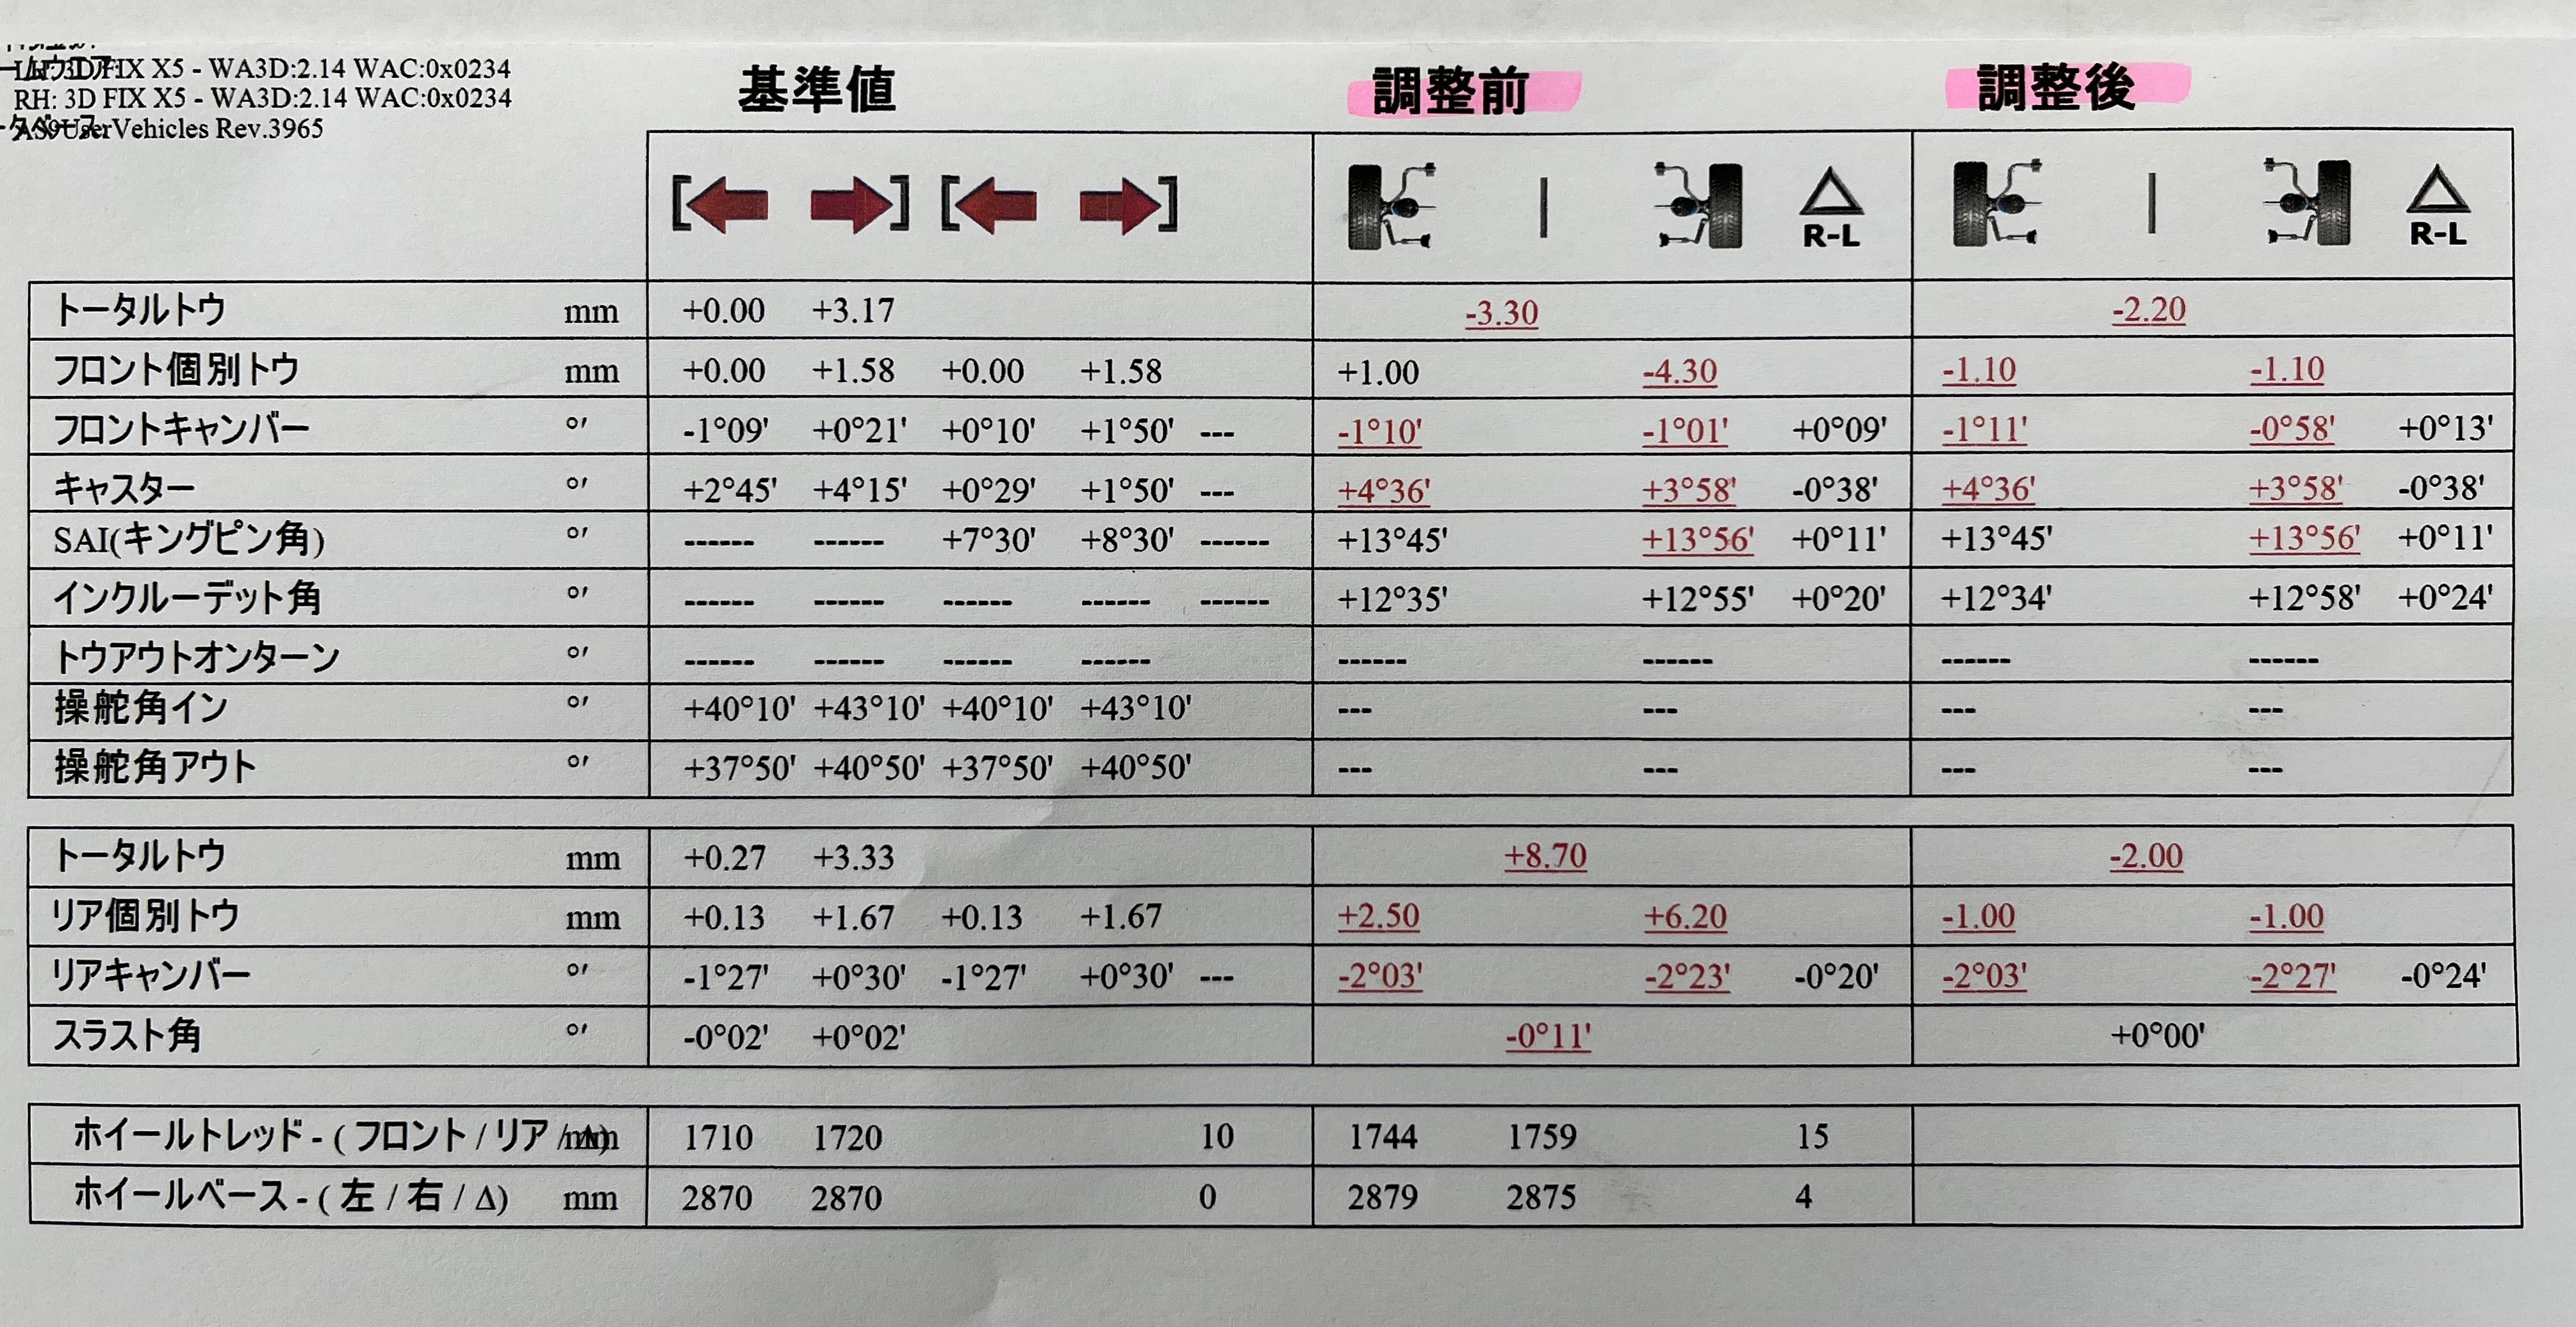 LH: 3D FIX X5 - WA3D:2.14 WAC:0x0234
RH: 3D FIX X5 - WA3D:2.14 WAC:0x0234
AS9UserVehicles Rev.3965
基準値 調整前 調整後
R-L R-L
トータルトウ mm +0.00 +3.17 -3.30 -2.20
フロント個別トウ mm +0.00 +1.58 +0.00 +1.58 +1.00 -4.30 -1.10 -1.10
フロントキャンバー °′ -1°09' +0°21' +0°10' +1°50' --- -1°10' -1°01' +0°09' -1°11' -0°58' +0°13'
キャスター °′ +2°45' +4°15' +0°29' +1°50' --- +4°36' +3°58' -0°38' +4°36' +3°58' -0°38'
SAI(キングピン角) °′ ------ ------ +7°30' +8°30' ------ +13°45' +13°56' +0°11' +13°45' +13°56' +0°11'
インクルーデット角 °′ ------ ------ ------ ------ ------ +12°35' +12°55' +0°20' +12°34' +12°58' +0°24'
トウアウトオンターン °′ ------ ------ ------ ------ ------ ------ ------ ------
操舵角イン °′ +40°10' +43°10' +40°10' +43°10' --- --- --- ---
操舵角アウト °′ +37°50' +40°50' +37°50' +40°50' --- --- --- ---
トータルトウ mm +0.27 +3.33 +8.70 -2.00
リア個別トウ mm +0.13 +1.67 +0.13 +1.67 +2.50 +6.20 -1.00 -1.00
リアキャンバー °′ -1°27' +0°30' -1°27' +0°30' --- -2°03' -2°23' -0°20' -2°03' -2°27' -0°24'
スラスト角 °′ -0°02' +0°02' -0°11' +0°00'
ホイールトレッド - ( フロント / リア / Δ) mm 1710 1720 10 1744 1759 15
ホイールベース - ( 左 / 右 / Δ) mm 2870 2870 0 2879 2875 4